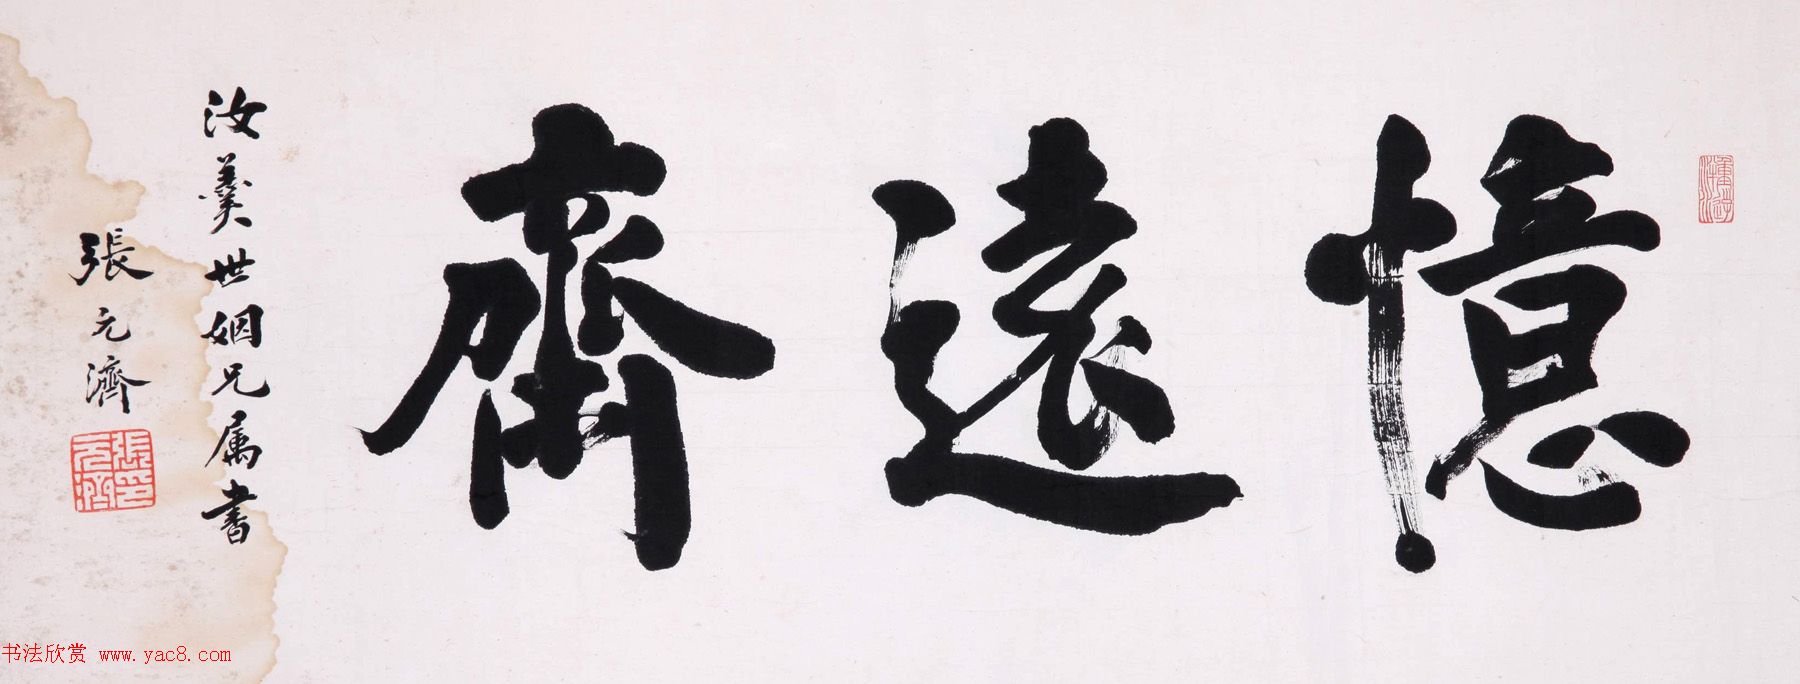 憶遠齋
汝羹世姻兄属書
張元濟
張印元濟
书法欣赏 www.yac8.com